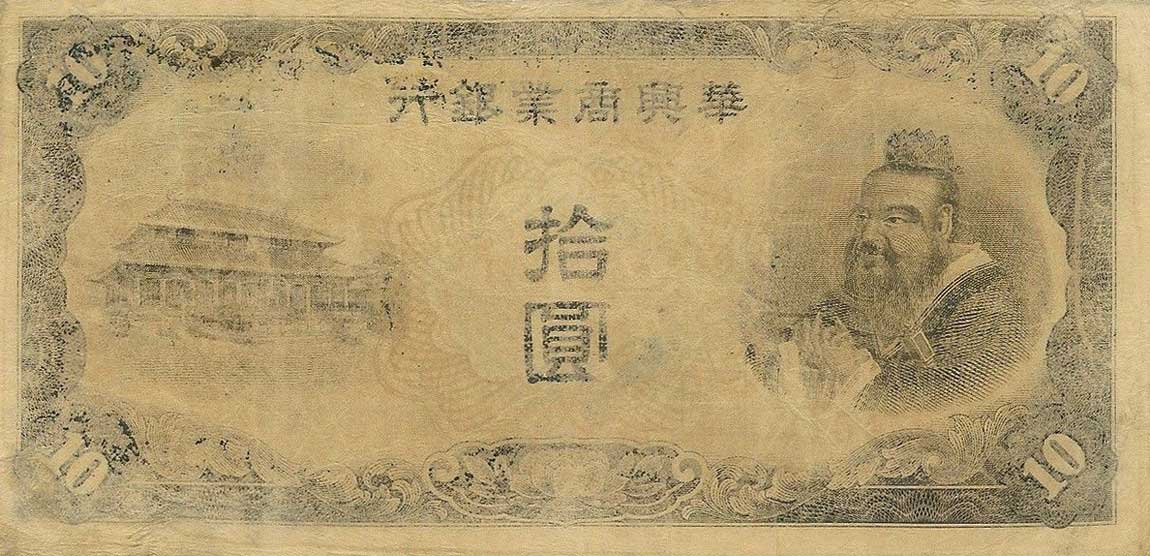 10
10
華興商業銀行
拾
圓
10
10